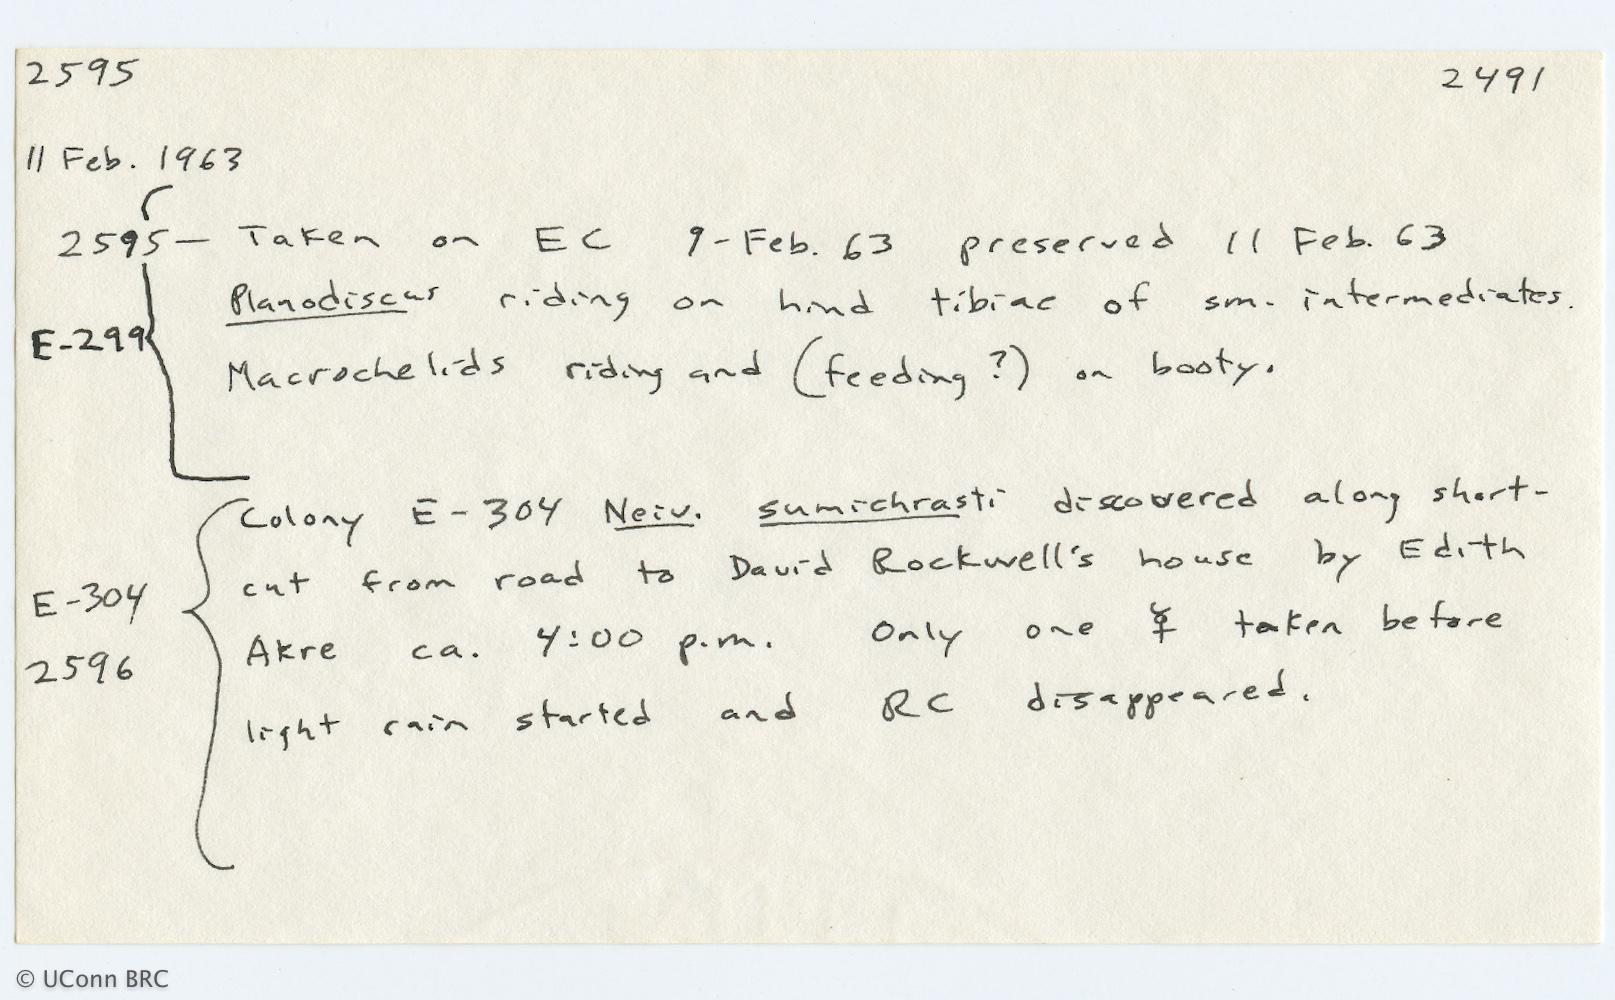 2595 2491
11 Feb. 1963
2595 — Taken on EC 9-Feb. 63 preserved 11 Feb. 63
Planodiscus riding on hind tibiae of sm. intermediates.
E-299
Macrochelids riding and (feeding?) on booty.
Colony E-304 Neiv. sumichrasti discovered along short-
cut from road to David Rockwell's house by Edith
E-304
Akre ca. 4:00 p.m. Only one ☿ taken before
2596
light rain started and RC disappeared.
© UConn BRC